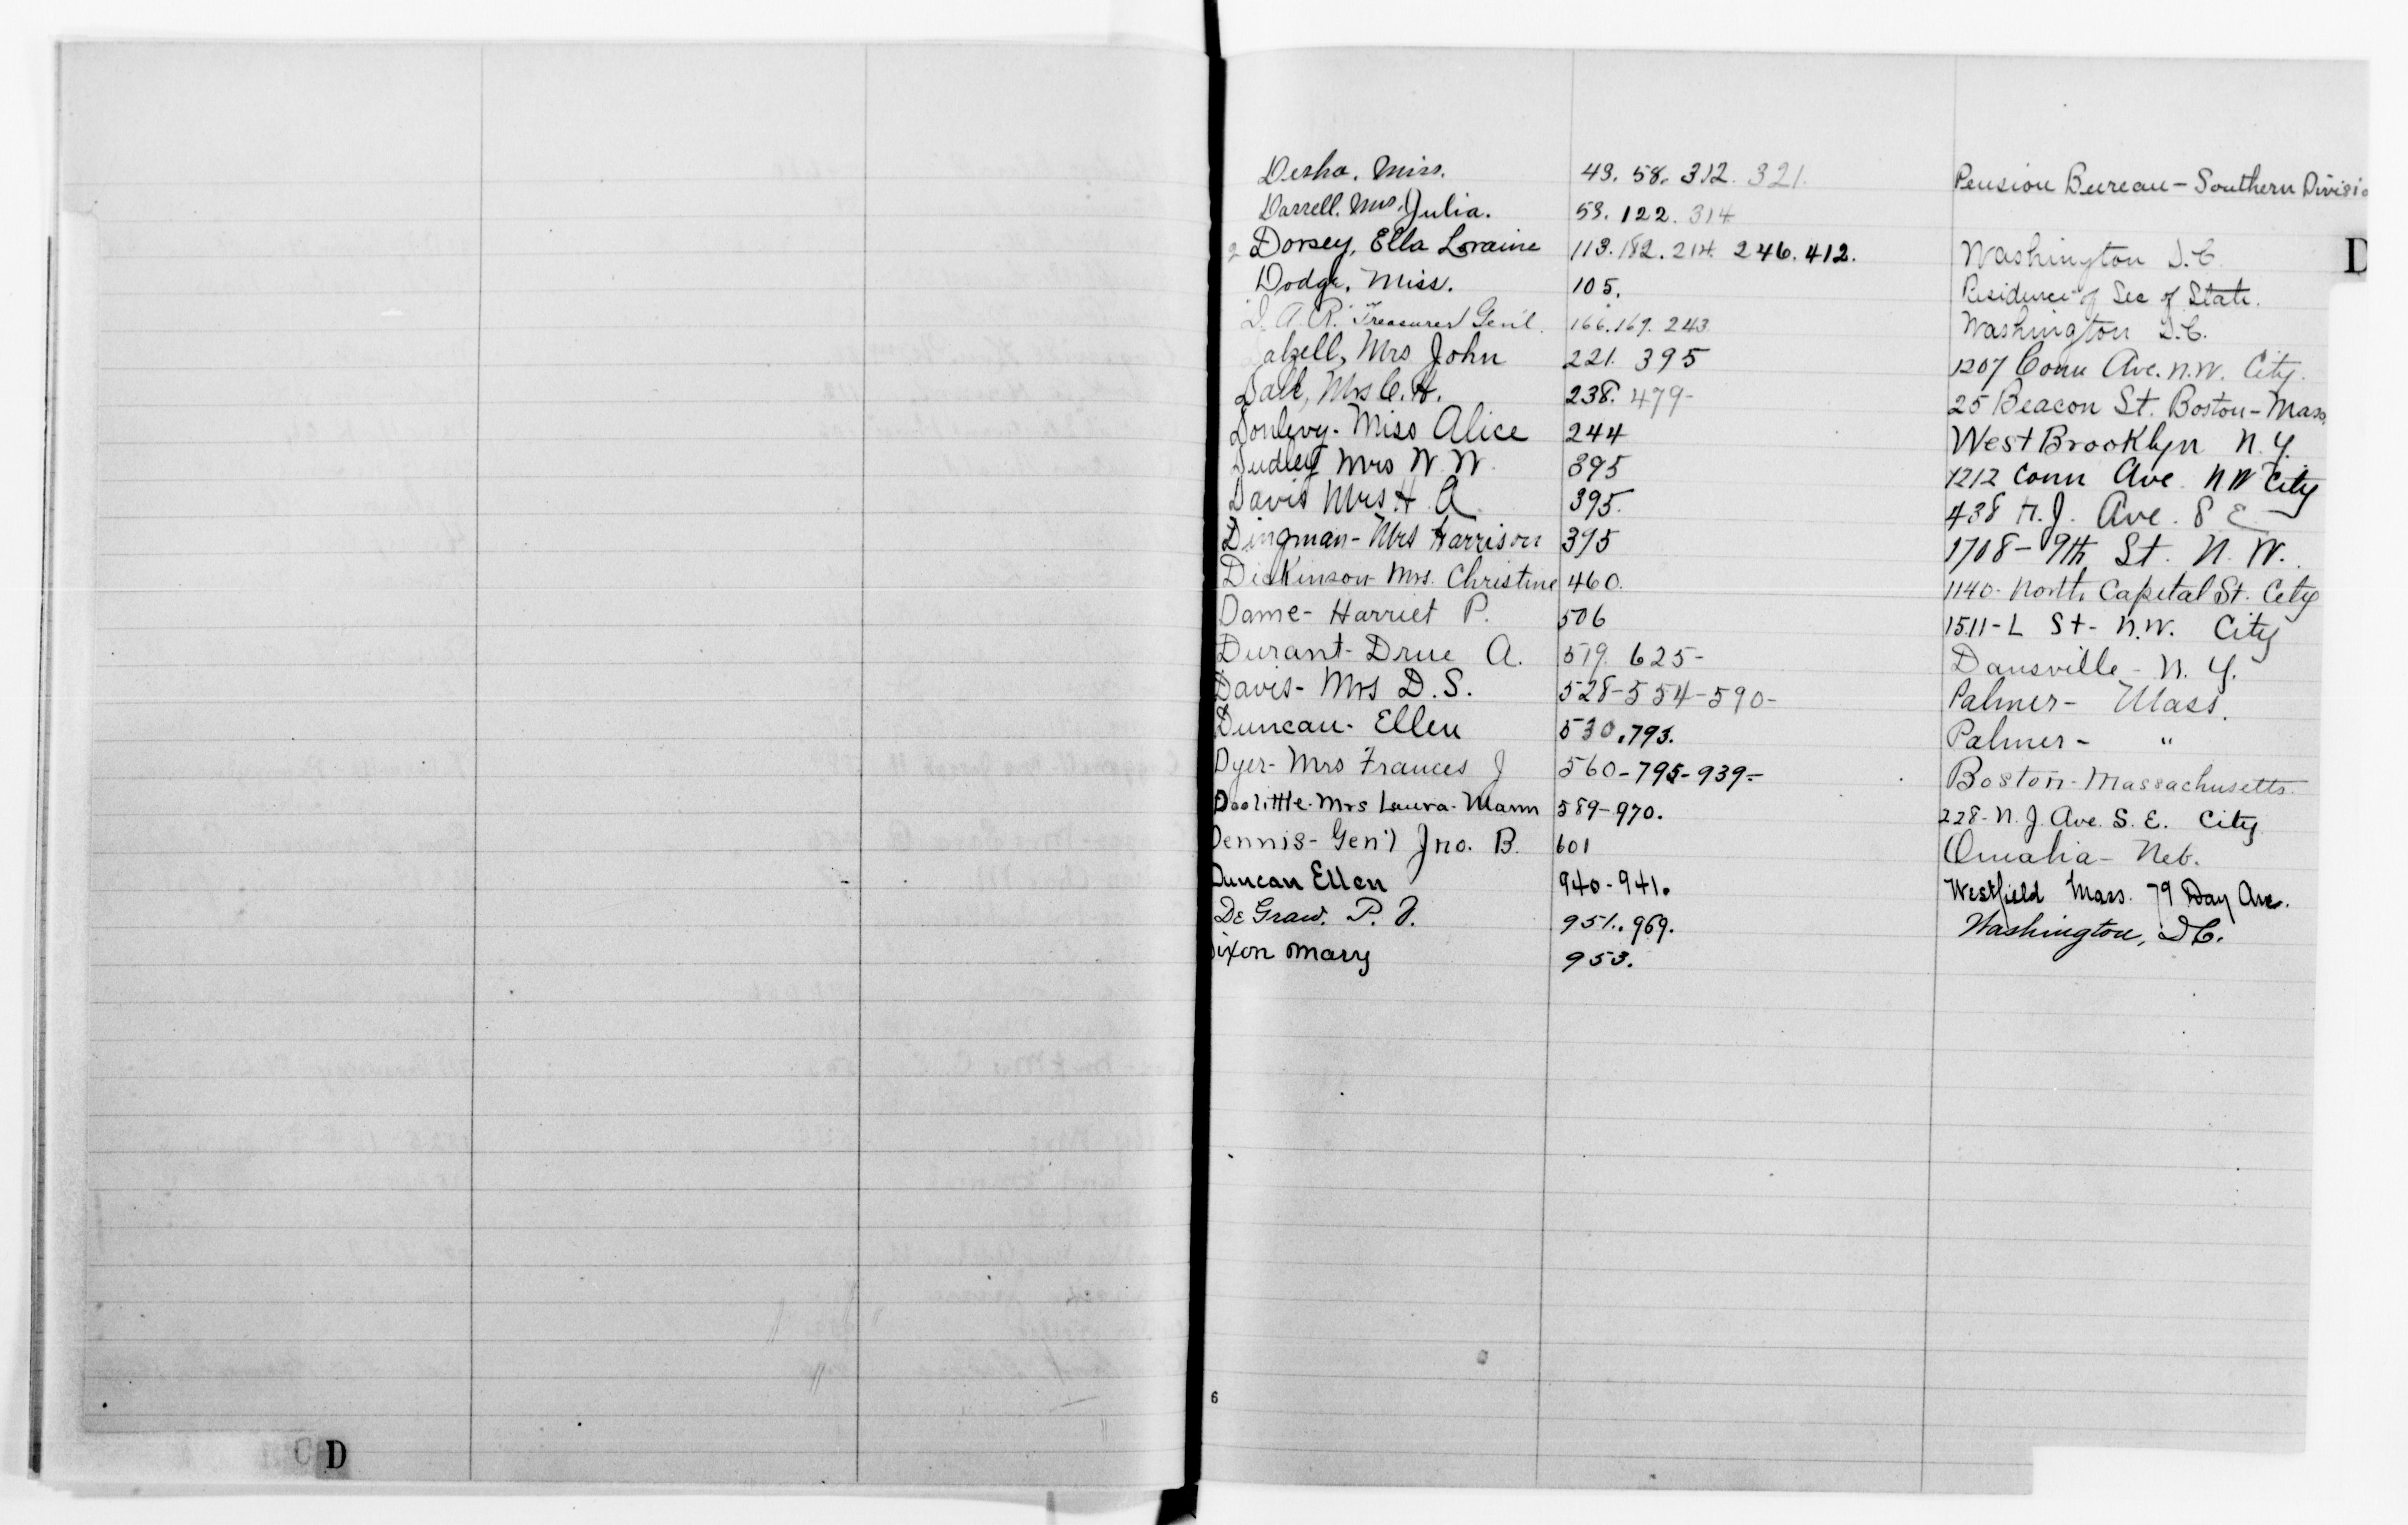 Desha. Miss. 43. 58. 312. 321. Pension Bureau - Southern Divisio
Darrell. Mrs. Julia. 53. 122. 314
2 Dorsey, Ella Loraine 113. 182. 214. 246. 412. Washington D.C.
D
Dodge. Miss. 105. Residence of Sec of State.
D. A. R. Treasurer Gen'l. 166. 169. 243 Washington D.C.
Dalzell, Mrs John 221. 395 1207 Conn Ave. N.W. City.
Dall, Mrs C. H. 238. 479- 25 Beacon St. Boston - Mass.
Donlevy. Miss Alice 244 West Brooklyn N. Y.
Dudley Mrs W. W. 395 1212 Conn Ave. N W City
Davis Mrs. H. A. 395. 438 N. J. Ave. S E
Dingman - Mrs Harrison 395 1708 - 9th St. N. W.
Dickinson Mrs. Christine 460. 1140. North Capital St. City
Dame - Harriet P. 506 1511 - L St - N.W. City
Durant - Drue A. 519. 625 - Dansville - N. Y.
Davis - Mrs D. S. 528 - 554 - 590 - Palmer - Mass.
Duncan - Ellen 530. 793. Palmer - "
Dyer - Mrs Frances J 560 - 795 - 939 - Boston - Massachusetts
Doolittle - Mrs Laura - Mann 589 - 970. 228 - N. J. Ave. S. E. City
Dennis - Gen'l Jno. B. 601 Omaha - Neb.
Duncan Ellen 940 - 941. Westfield Mass. 79 Day Ave.
De Graw. P. V. 951. 969. Washington, D C.
Dixon Mary 953.
6
C D